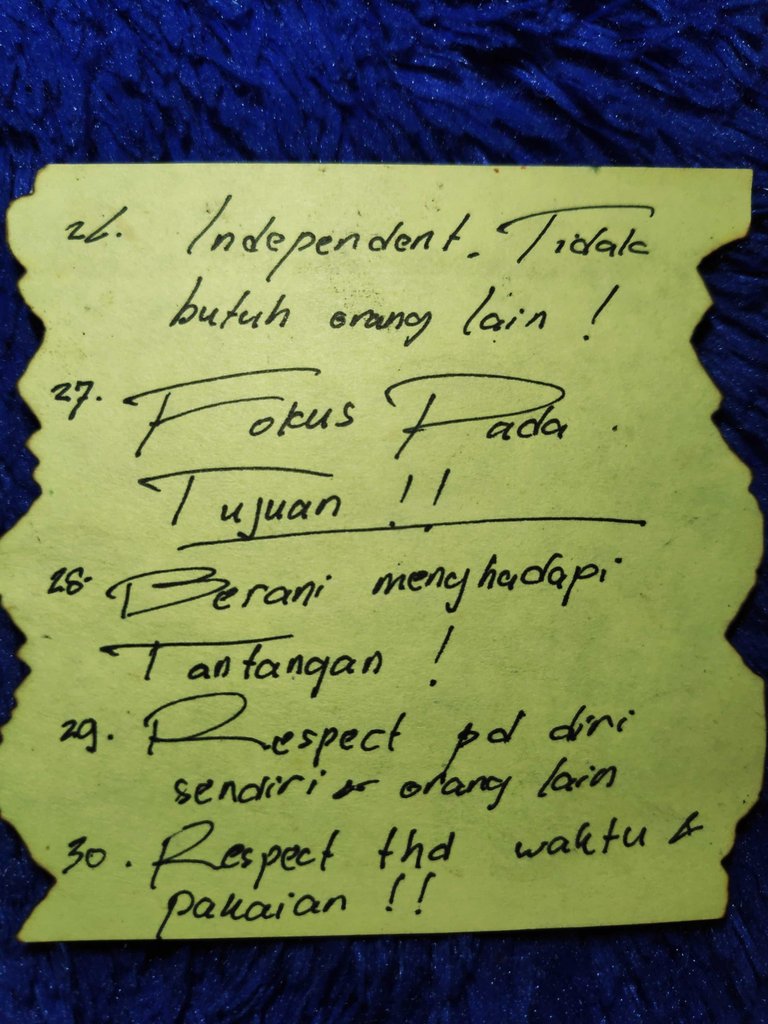 26. Independent. Tidak
butuh orang lain !
27. Fokus Pada.
Tujuan !!
28. Berani menghadapi
Tantangan !
29. Respect pd diri
sendiri & orang lain
30. Respect thd waktu &
pakaian !!